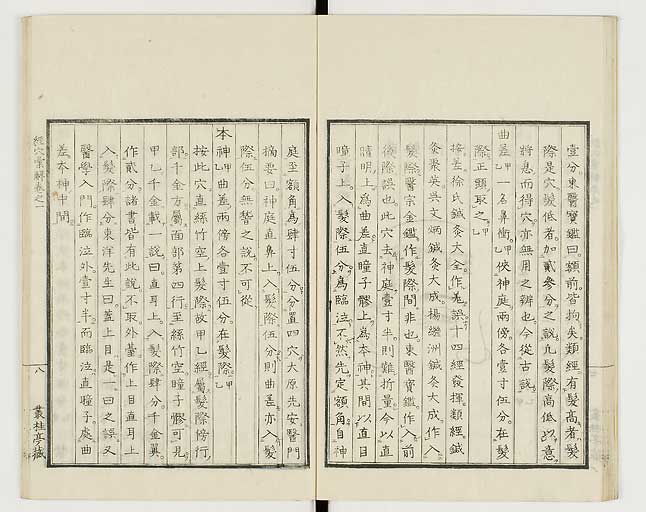 壹分東醫寶鑑曰額前皆拘矣類經有髮高者髮
際是穴髮低者加貳參分之說凡髮際高低以意
將息而得穴亦無用之辨也今從古說
曲差甲一名鼻衝甲乙俠神庭兩傍各壹寸伍分在髮
際正頭取之甲乙
按差徐氏鍼灸大全作𦤎誤十四經發揮類經鍼
灸聚英吳文炳鍼灸大成楊繼洲鍼灸大成作入
髮際醫宗金鑑作髮際間非也東醫寶鑑作入前
後際誤也此穴去神庭壹寸半則難折量今以直目
睛明上為曲差直瞳子髎上為本神其間以直目
瞳子上入髮際伍分為臨泣不然先定額角自神
庭至額角為肆寸伍分分置四穴大原先安醫門
摘要曰神庭直鼻上入髮際伍分則曲差亦入髮
際伍分無替之說不可從
本神甲乙曲差兩傍各壹寸伍分在髮際甲乙
按此穴直絲竹空上髮際故甲乙經屬髮際傍行
部千金方屬面部第四行至絲竹空瞳子髎可見
甲乙千金載一說曰直耳上入髮際肆分千金翼
作貳分諸書皆有此說不取外臺作上目直耳上
入髮際肆分東洋先生曰蓋上目是一曰之誤又
醫學入門作臨泣外壹寸半而臨泣直瞳子處曲
差本神中間
經穴彙解卷之一
八
叢桂亭藏